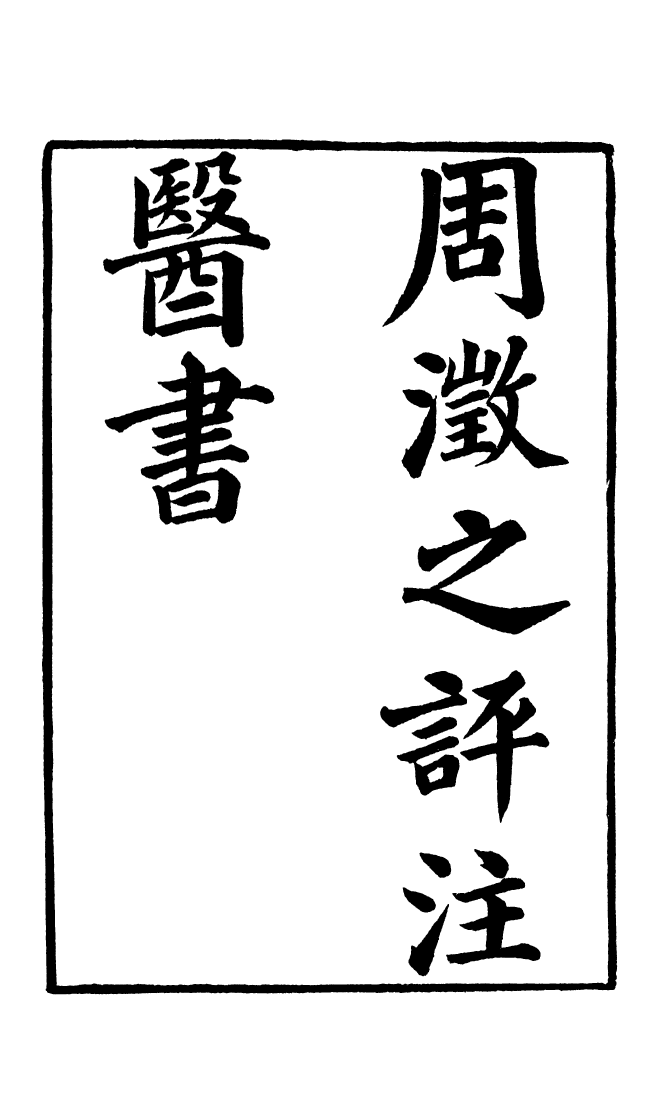 周澂之評注
醫書